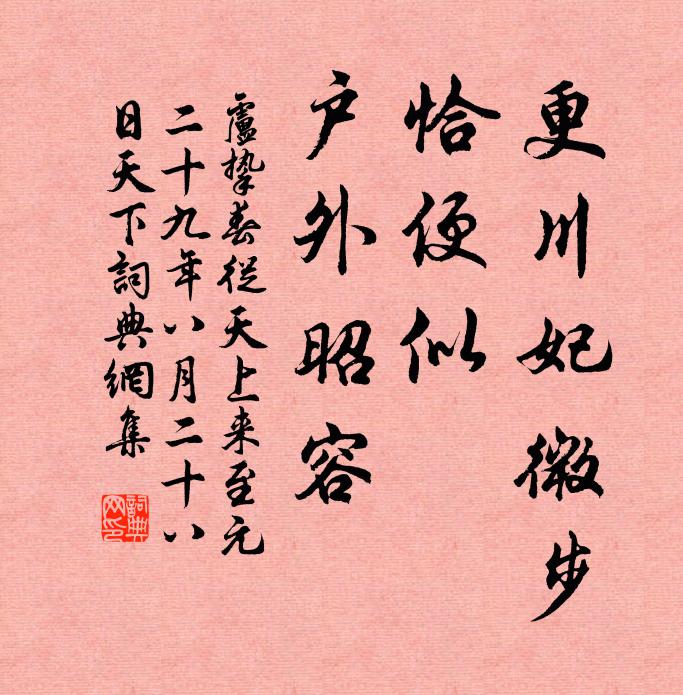 更川妃微步
恰便似
户外昭容
盧摯春從天上来至元
二十九年八月二十八
日天下詞典網集
詞典
网印